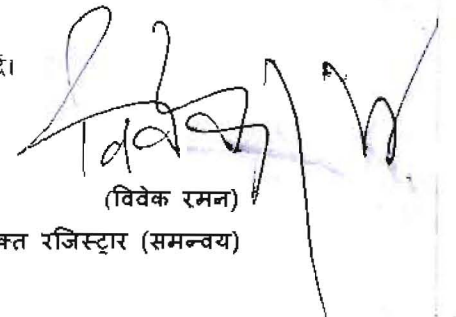 विवेक
(विवेक रमन)
क्त रजिस्ट्रार (समन्वय)